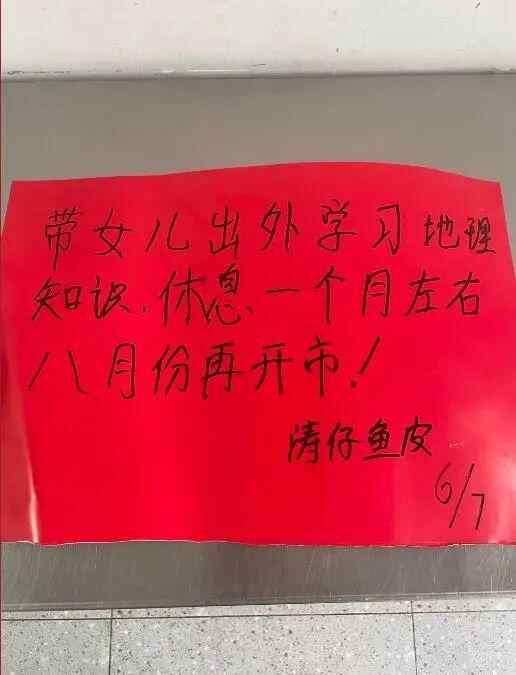 带女儿出外学习地理
知识.休息.一个月左右
八月份再开市.!
涛仔鱼皮
6/7